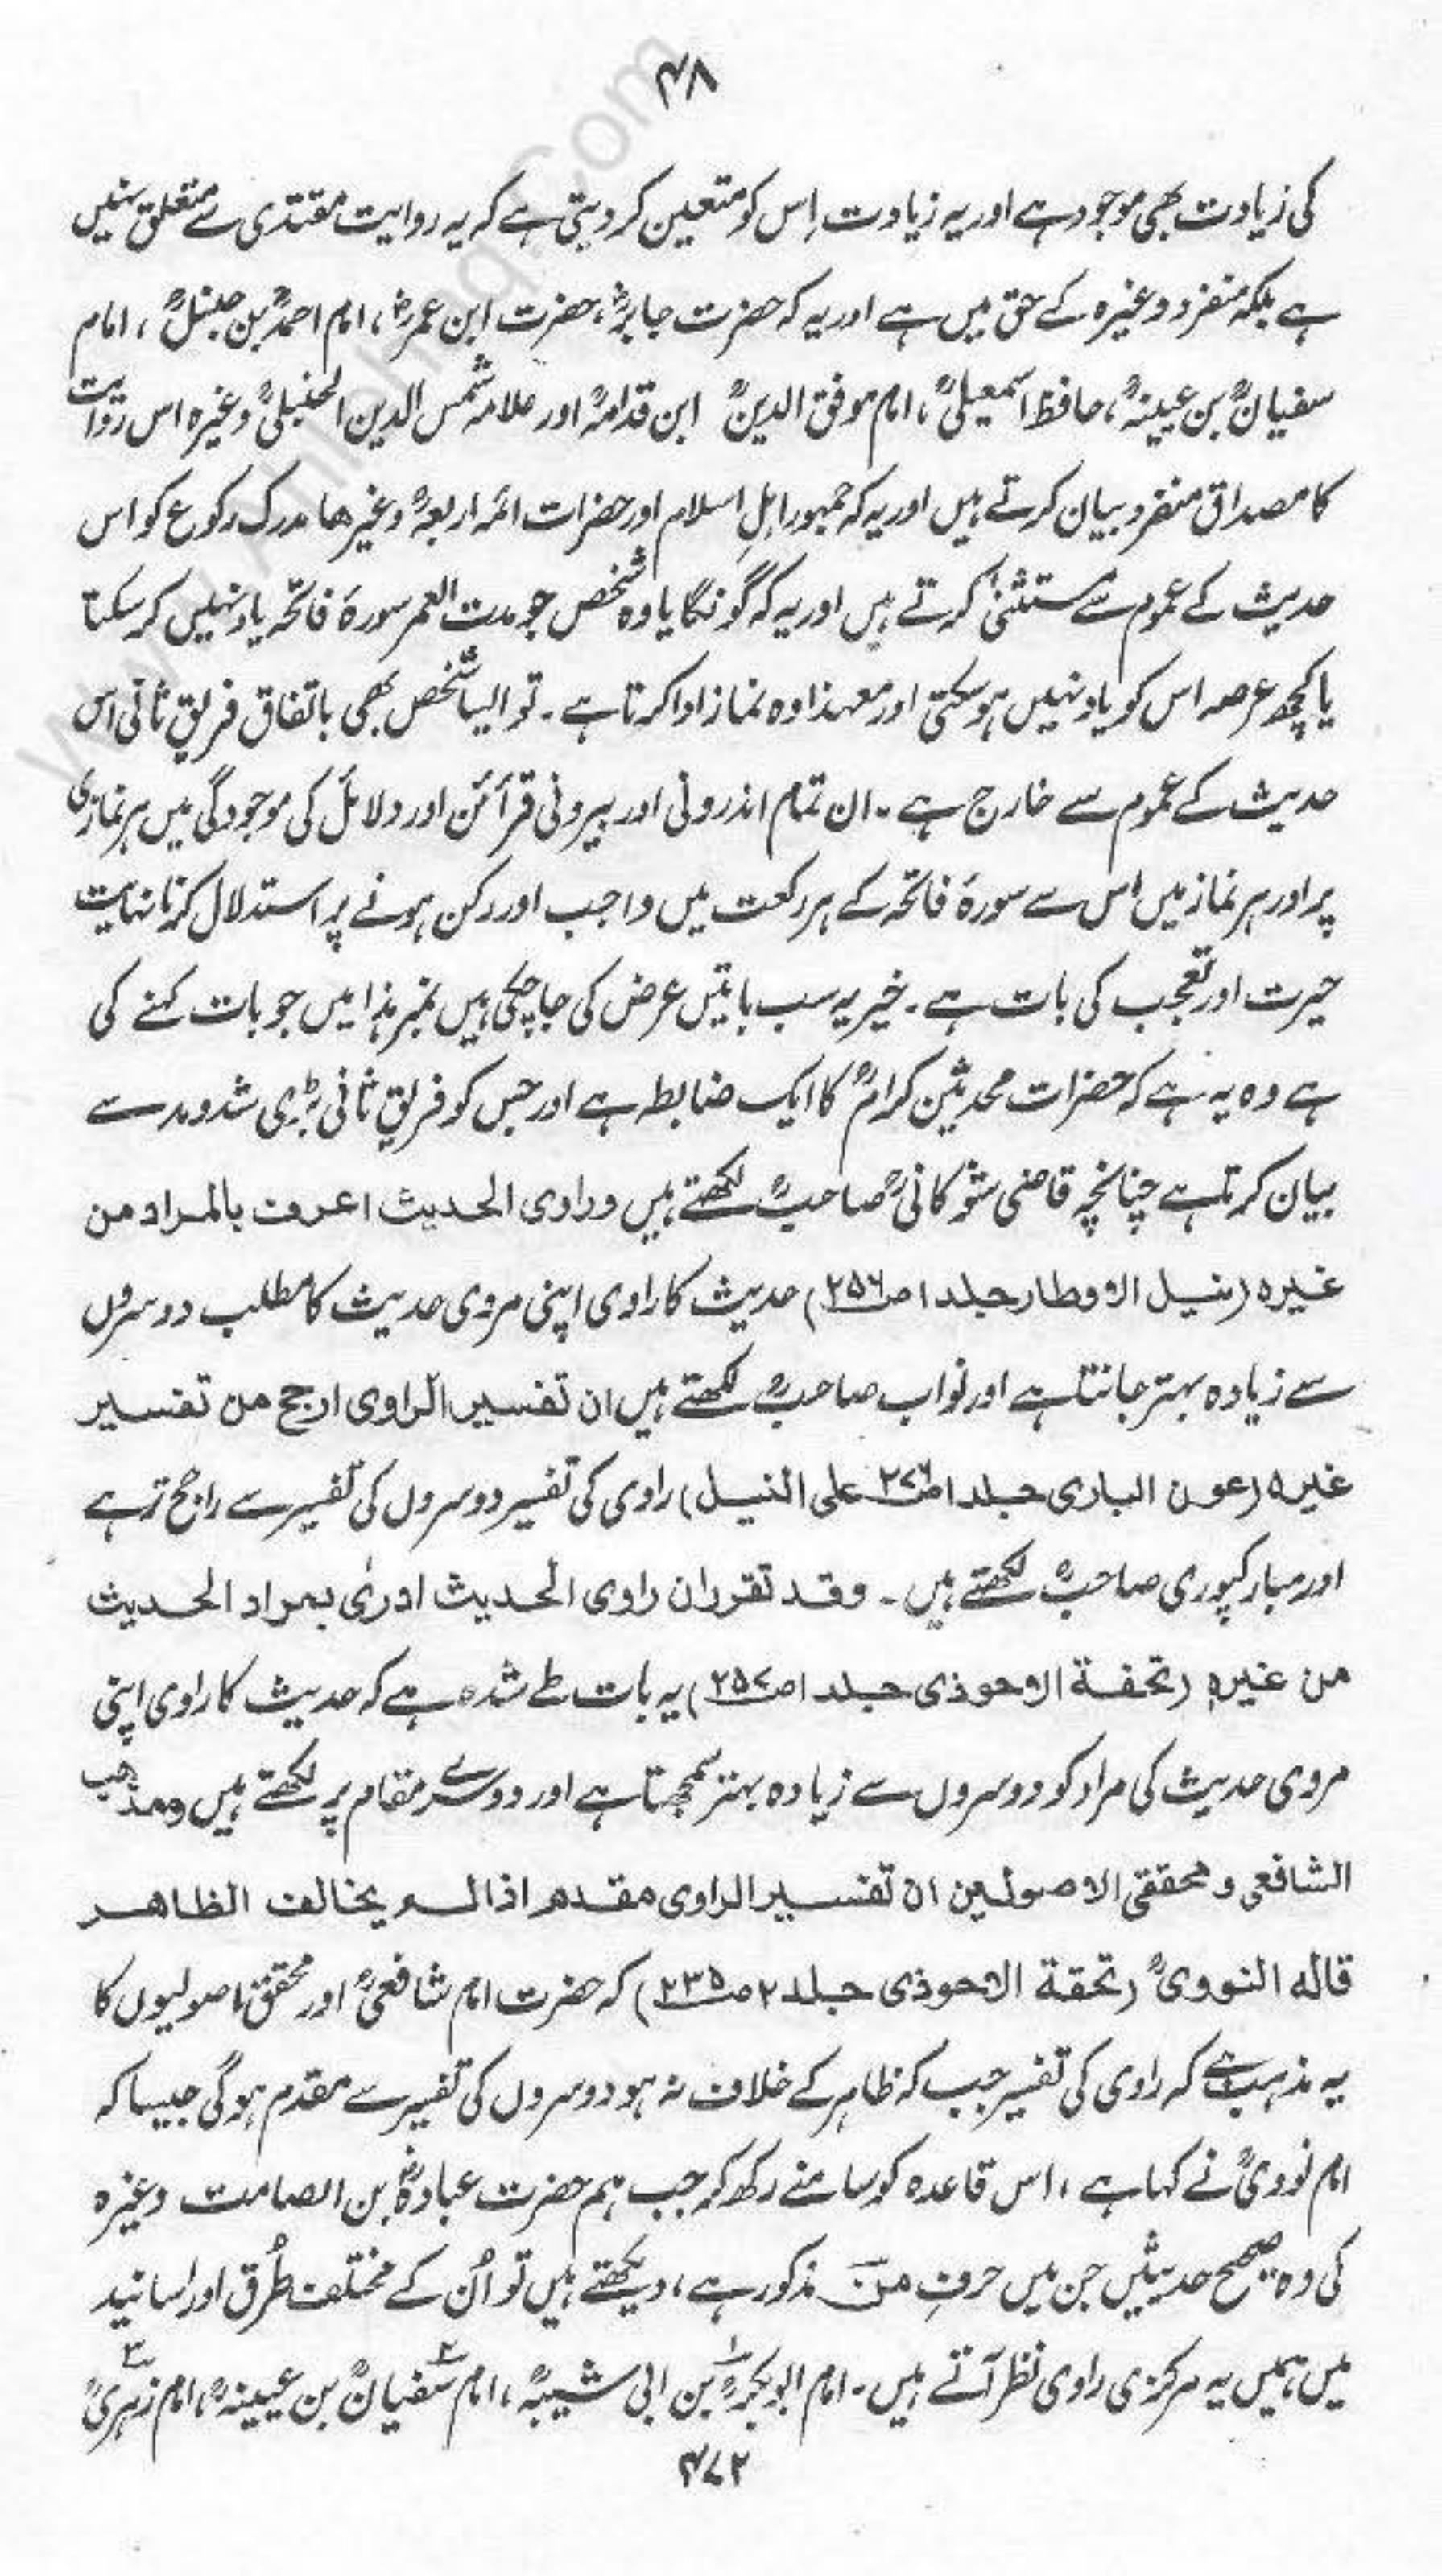 ۴۸
کی زیادت بھی موجود ہے اور یہ زیادت اِس کو متعین کر دیتی ہے کہ یہ روایت مقتدی سے متعلق نہیں
ہے بلکہ منفرد وغیرہ کے حق میں ہے اور یہ کہ حضرت جابرؓ، حضرت ابن عمرؓ، امام احمدؒ بن حنبلؒ، امام
سفیانؒ بن عیینہؒ، حافظ اسمعیلیؒ، امام موفق الدینؒ ابن قدامہؒ اور علامہ شمس الدین الحنبلیؒ وغیرہ اس روایت
کا مصداق منفرد بیان کرتے ہیں اور یہ کہ جمہور اہلِ اسلام اور حضرات ائمہ اربعہؒ وغیرھا مدرک رکوع کو اس
حدیث کے عموم سے مستثنیٰ کرتے ہیں اور یہ کہ گونگا یا وہ شخص جو مدت العمر سورۂ فاتحہ یاد نہیں کر سکتا
یا کچھ عرصہ اس کو یاد نہیں ہو سکتی اور معہذا وہ نماز ادا کرتا ہے۔ تو ایسا شخص بھی باتفاق فریقِ ثانی اس
حدیث کے عموم سے خارج ہے۔ ان تمام اندرونی اور بیرونی قرائن اور دلائل کی موجودگی میں ہر نمازی
پر اور ہر نماز میں اس سے سورۂ فاتحہ کے ہر رکعت میں واجب اور رکن ہونے پر استدلال کرنا نہایت
حیرت اور تعجب کی بات ہے۔ خیر یہ سب باتیں عرض کی جا چکی ہیں نمبر ہذا میں جو بات کہنے کی
ہے وہ یہ ہے کہ حضرات محدثین کرامؒ کا ایک ضابطہ ہے اور جس کو فریقِ ثانی بڑی شدومد سے
بیان کرتا ہے چنانچہ قاضی شوکانیؒ صاحبؒ لکھتے ہیں وراوی الحدیث اعرف بالمراد من
غیرہ (نیل الاوطار جلد ۱ ص۲۵۶) حدیث کا راوی اپنی مروی حدیث کا مطلب دوسروں
سے زیادہ بہتر جانتا ہے اور نواب صاحبؒ لکھتے ہیں ان تفسیر الراوی ارجح من تفسیر
غیرہ (عون الباری جلد ۱ ص۲۷۶ علی النیل) راوی کی تفسیر دوسروں کی تفسیر سے راجح تر ہے
اور مبارکپوری صاحبؒ لکھتے ہیں۔ وقد تقرر ان راوی الحدیث ادریٰ بمراد الحدیث
من غیرہٖ (تحفۃ الاحوذی جلد ۱ ص۲۵۷) یہ بات طے شدہ ہے کہ حدیث کا راوی اپنی
مروی حدیث کی مراد کو دوسروں سے زیادہ بہتر سمجھتا ہے اور دوسرے مقام پر لکھتے ہیں ومذھب
الشافعی و محققی الاصولیین ان تفسیر الراوی مقدم اذا لم یخالف الظاھر
قالہ النوویؒ (تحفۃ الاحوذی جلد ۲ ص۲۳۵) کہ حضرت امام شافعیؒ اور محقق اصولیوں کا
یہ مذہب ہے کہ راوی کی تفسیر جب کہ ظاہر کے خلاف نہ ہو دوسروں کی تفسیر سے مقدم ہوگی جیسا کہ
امام نوویؒ نے کہا ہے، اس قاعدہ کو سامنے رکھ کر جب ہم حضرت عبادہؓ بن الصامت وغیرہ
کی وہ صحیح حدیثیں جن میں حرفِ من مذکور ہے، دیکھتے ہیں تو اُن کے مختلف طُرق اور اسانید
میں ہمیں یہ مرکزی راوی نظر آتے ہیں۔ امام ابوبکرؒ۱ بن ابی شیبہؒ، امام سفیانؒ۲ بن عیینہؒ، امام زہریؒ۳
۴۷۲